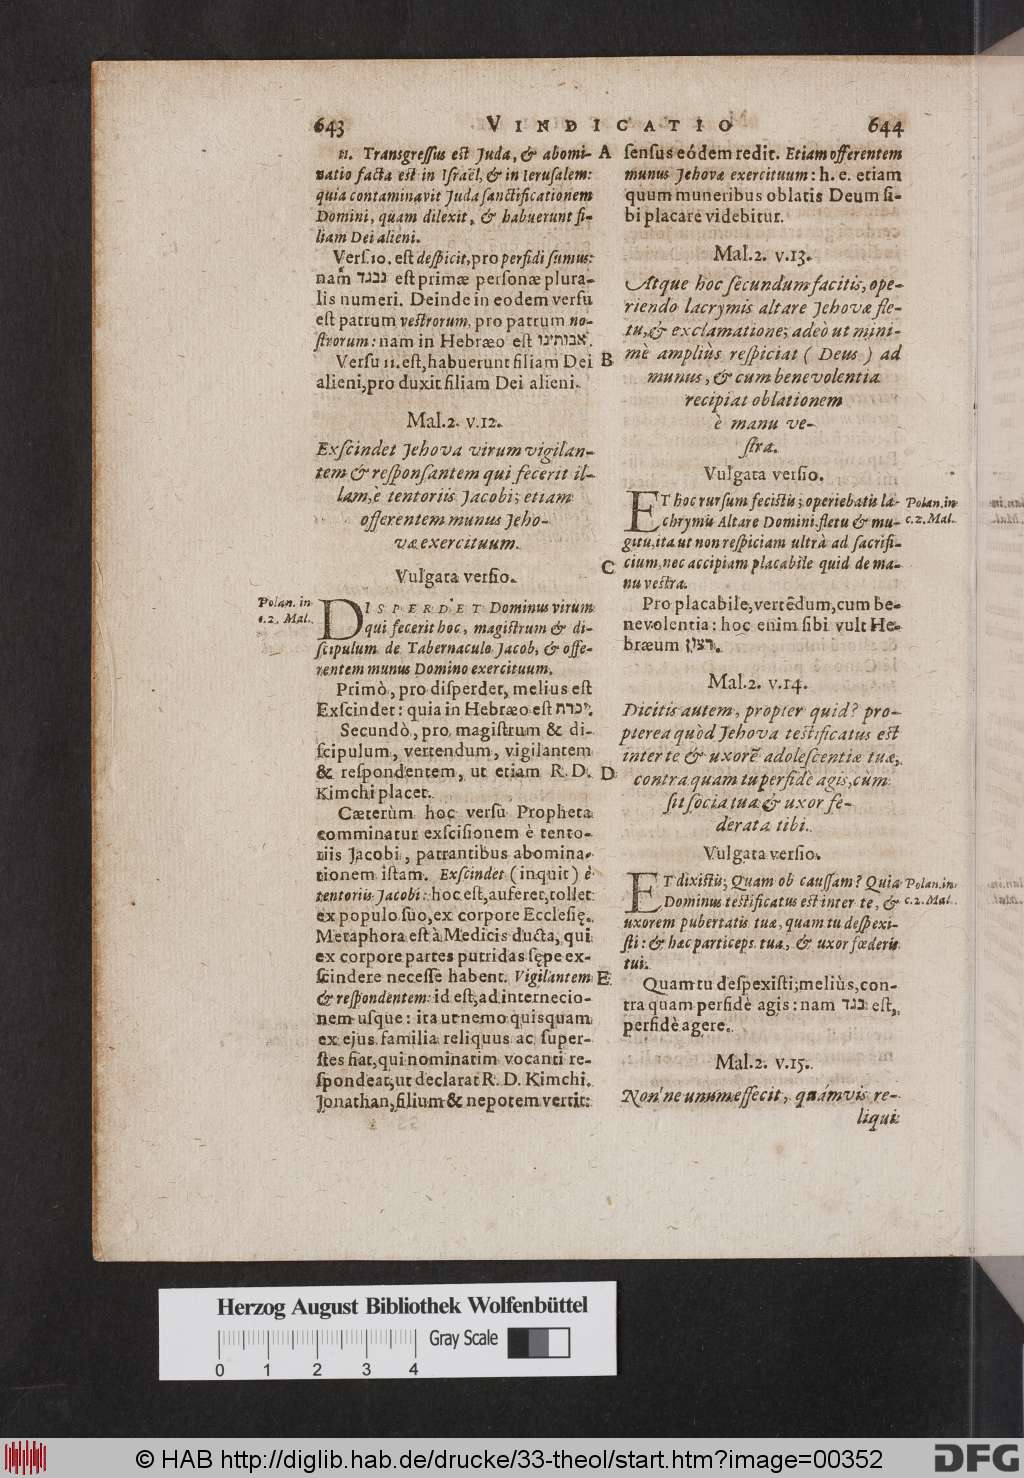 643 VINDICATIO 644
11. Transgressus est Juda, & abomi-
natio facta est in Israël, & in Ierusalem:
quia contaminavit Juda sanctificationem
Domini, quam dilexit, & habuerunt fi-
liam Dei alieni.
Vers. 10. est despicit, pro perfidi sumus:
nam נבגד est primæ personæ plura-
lis numeri. Deinde in eodem versu
est patrum vestrorum, pro patrum no-
strorum: nam in Hebræo est אבותינו.
Versu 11. est, habuerunt filiam Dei
alieni, pro duxit filiam Dei alieni.
Mal. 2. v. 12.
Exscindet Jehova virum vigilan-
tem & responsantem qui fecerit il-
lam, è tentoriis Jacobi; etiam
offerentem munus Jeho-
væ exercituum.
Vulgata versio.
Polan. in
c. 2. Mal.
DISPERDET Dominus virum
qui fecerit hoc, magistrum & di-
scipulum de Tabernaculo Jacob, & offe-
rentem munus Domino exercituum.
Primò, pro disperdet, melius est
Exscindet: quia in Hebræo est יכרת.
Secundò, pro magistrum & di-
scipulum, vertendum, vigilantem
& respondentem, ut etiam R. D.
Kimchi placet.
Cæterùm hoc versu Propheta
comminatur exscisionem è tento-
riis Jacobi, patrantibus abomina-
tionem istam. Exscindet (inquit) è
tentoriis Jacobi: hoc est, auferet, tollet
ex populo suo, ex corpore Ecclesię.
Metaphora est à Medicis ducta, qui
ex corpore partes putridas sępe ex-
scindere necesse habent. Vigilantem
& respondentem: id est, ad internecio-
nem usque: ita ut nemo quisquam
ex ejus familia reliquus ac super-
stes fiat, qui nominatim vocanti re-
spondeat, ut declarat R. D. Kimchi.
Jonathan, filium & nepotem vertit:
A
B
C
D
E
sensus eódem redit. Etiam offerentem
munus Jehovæ exercituum: h. e. etiam
quum muneribus oblatis Deum si-
bi placare videbitur.
Mal. 2. v. 13.
Atque hoc secundum facitis, ope-
riendo lacrymis altare Jehovæ fle-
tu, & exclamatione; adeò ut mini-
mè ampliùs respiciat (Deus) ad
munus, & cum benevolentia
recipiat oblationem
è manu ve-
stra.
Vulgata versio.
ET hoc rursum fecistis; operiebatis la-
chrymis Altare Domini fletu & mu-
gitu, ita ut non respiciam ultrà ad sacrifi-
cium, nec accipiam placabile quid de ma-
nu vestra.
Polan. in
c. 2. Mal.
Pro placabile, vertēdum, cum be-
nevolentia: hoc enim sibi vult He-
bræum רצון.
Mal. 2. v. 14.
Dicitis autem, propter quid? pro-
pterea quòd Jehova testificatus est
inter te & uxorē adolescentiæ tuæ,
contra quam tu perfidè agis, cùm
sit socia tua & uxor fe-
derata tibi.
Vulgata versio.
ET dixistis; Quam ob caussam? Quia
Dominus testificatus est inter te, &
uxorem pubertatis tuæ, quam tu despexi-
sti: & hæc particeps tua, & uxor fœderis
tui.
Polan. in
c. 2. Mal.
Quam tu despexisti; meliùs, con-
tra quam perfidè agis: nam בגד est,
perfidè agere.
Mal. 2. v. 15.
Non'ne unum effecit, quámvis re-
liqui
Herzog August Bibliothek Wolfenbüttel
Gray Scale
0 1 2 3 4
© HAB http://diglib.hab.de/drucke/33-theol/start.htm?image=00352
DFG